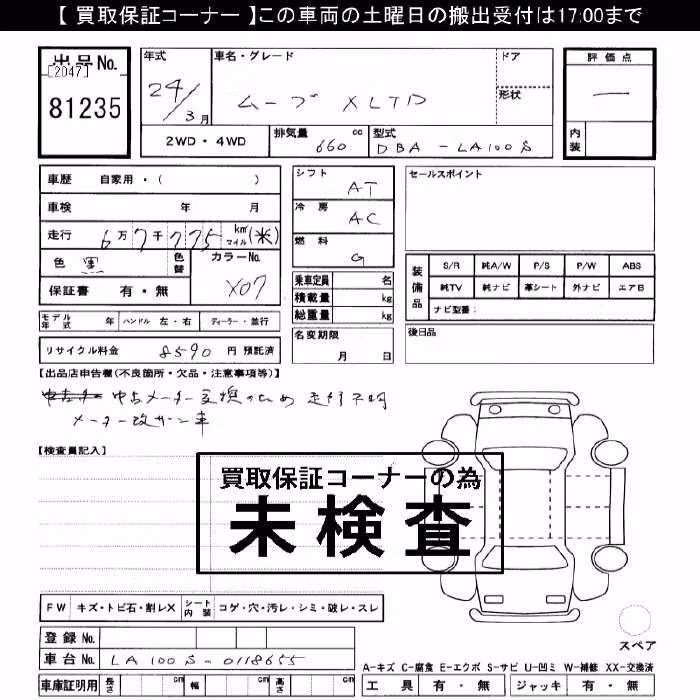 【 買取保証コーナー 】この車両の土曜日の搬出受付は17:00まで
出品No.
[2047]
81235
年式
24/3月
車名・グレード
ムーブ XLTD
ドア
形状
評価点
一
内装
2WD・4WD
排気量 660 cc
型式 DBA-LA100S
車歴 自家用・( )
車検 年 月
走行 6万7千775 km マイル(米)
色 黒
色替
カラーNo. X07
保証書 有・無
モデル年式 年 ハンドル 左・右 ディーラー・並行
リサイクル料金 8590 円 預託済
シフト AT
冷房 AC
燃料 G
乗車定員 名
積載量 kg
総重量 kg
名変期限
月 日
セールスポイント
装備品
S/R 純A/W P/S P/W ABS
純TV 純ナビ 革シート 外ナビ エアB
ナビ型番:
後日品
【出品店申告欄(不良箇所・欠品・注意事項等)】
中古メーター交換のため 走行不明
メーター改ザン車
【検査員記入】
買取保証コーナーの為
未検査
FW キズ・トビ石・割レX シート内装 コゲ・穴・汚レ・シミ・破レ・スレ
登録No.
車台No. LA100S-0118655
車庫証明用 長さ cm 幅 cm 高さ cm
スペア
A-キズ C-腐食 E-エクボ S-サビ U-凹ミ W-補修 XX-交換済
工具 有・無 ジャッキ 有・無